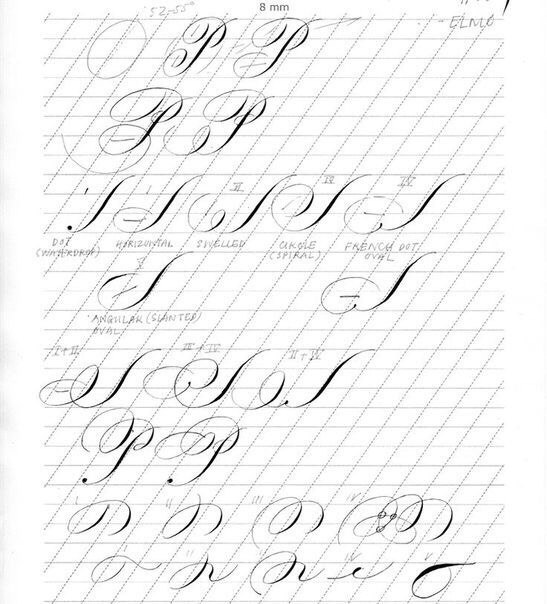 8 mm
52-55°
- ELMO
P P
P P
I II IV IV
DOT HORIZONTAL SWELLED CIRCLE FRENCH DOT
(WATERDROP) (SPIRAL) OVAL
V
ANGULAR (SLANTED)
OVAL
I+II III+IV II+IV
P P
i ii iii iv
ii iv v